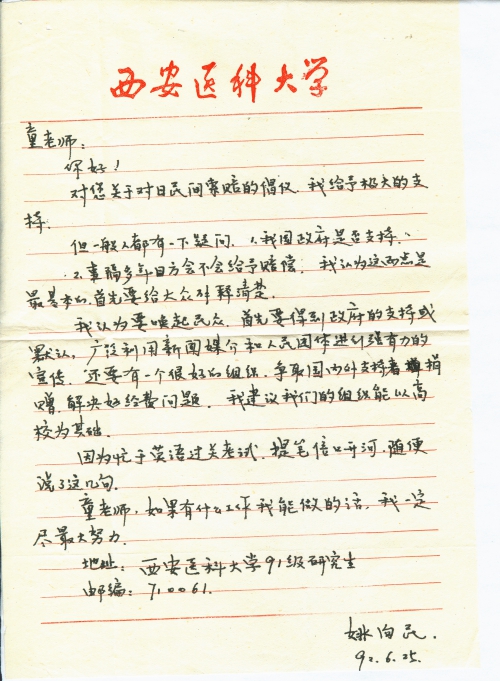 西安医科大学
童老师:
你好!
对您关于对日民间索赔的倡仪, 我给予极大的支
持.
但一般人都有一下疑问. 1.我国政府是否支持.
2.事隔多年日方会不会给予赔偿. 我认为这两点是
最基本的, 首先要给大众解释清楚.
我认为要唤起民众, 首先要得到政府的支持或
默认, 广泛利用新闻媒介和人民团体进行强有力的
宣传. 还要有一个很好的组织. 争取国内外支持者捐
赠. 解决好经费问题. 我建议我们的组织能以高
校为基础.
因为忙于英语过关考试, 提笔信口开河, 随便
说了这几句.
童老师, 如果有什么工作我能做的话, 我一定
尽最大努力.
地址: 西安医科大学91级研究生
邮编: 710061.
姚向民.
92.6.25.